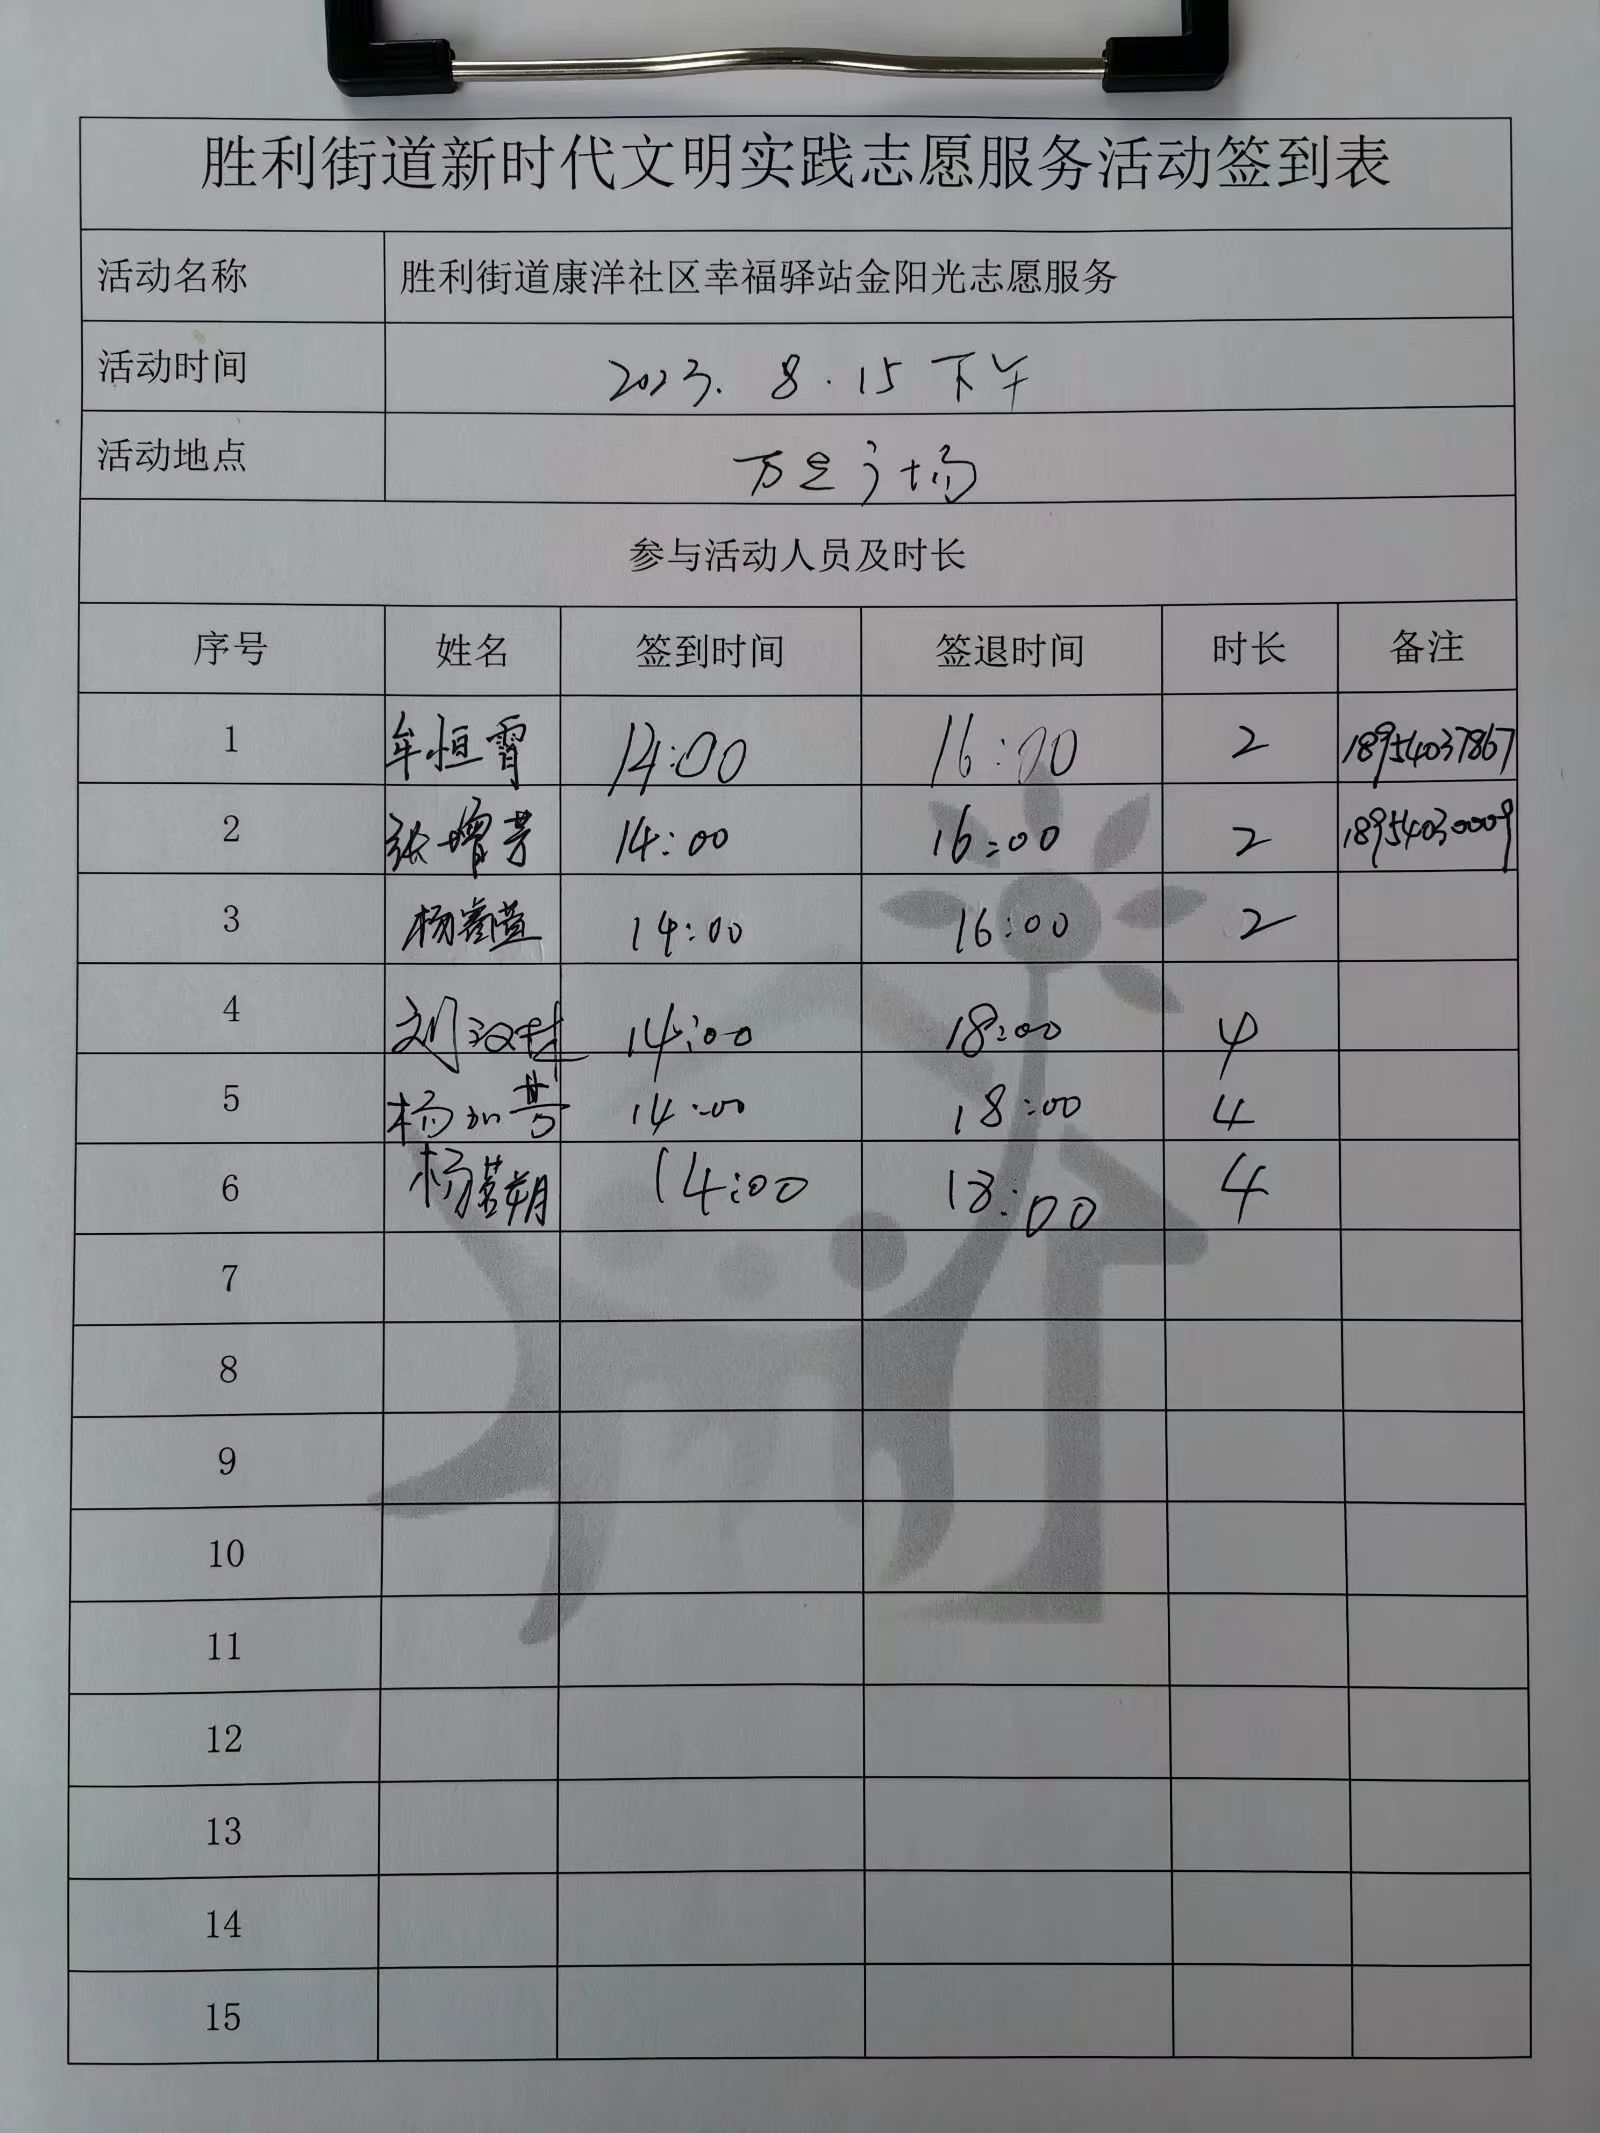 胜利街道新时代文明实践志愿服务活动签到表
活动名称 胜利街道康洋社区幸福驿站金阳光志愿服务
活动时间 2023. 8. 15 下午
活动地点 万达广场
参与活动人员及时长
序号 姓名 签到时间 签退时间 时长 备注
1 牟恒霄 14:00 16:00 2 18954037867
2 张增芳 14:00 16:00 2 18954030009
3 杨睿萱 14:00 16:00 2
4 刘 14:00 18:00 4
5 杨 14:00 18:00 4
6 杨茗朔 14:00 18:00 4
7
8
9
10
11
12
13
14
15